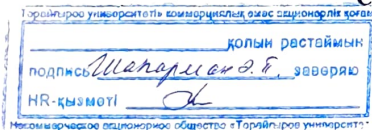 Торайғыров университеті» коммерциялық емес акционерлік қоғам
қолын растаймын
подпись Шапарман Э.Т. заверяю
HR-қызметі
Некоммерческое акционерное общество «Торайғыров университет»